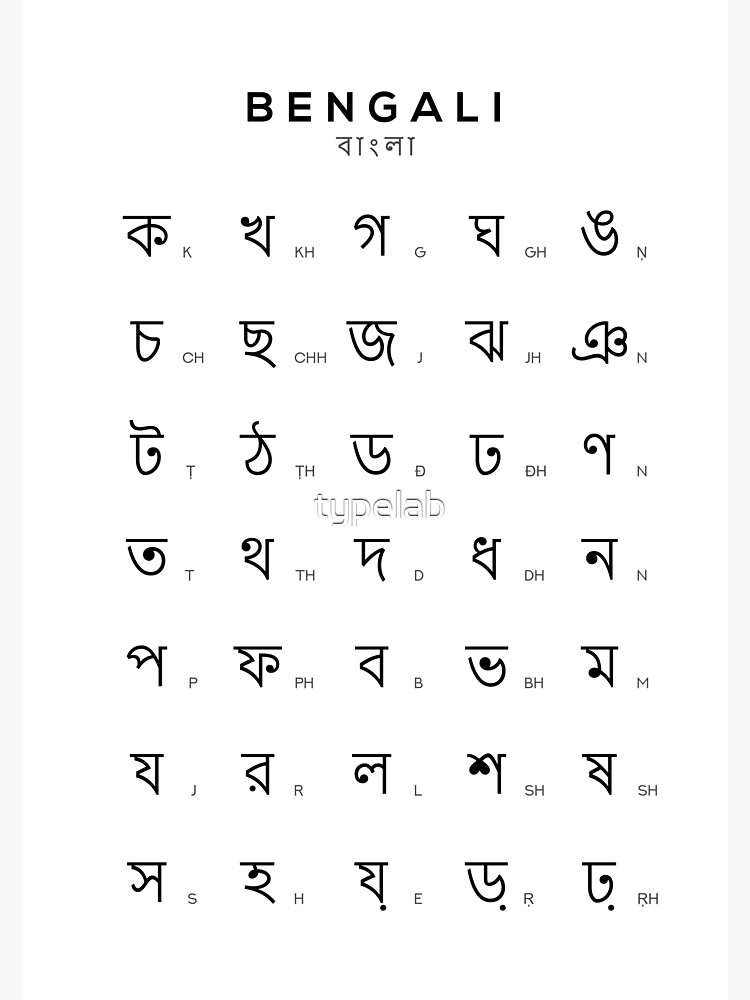 BENGALI
বাংলা
ক K খ KH গ G ঘ GH ঙ Ṇ
চ CH ছ CHH জ J ঝ JH ঞ N
ট Ṭ ঠ ṬH ড Đ ঢ ĐH ণ N
typelab
ত T থ TH দ D ধ DH ন N
প P ফ PH ব B ভ BH ম M
য J র R ল L শ SH ষ SH
স S হ H য় E ড় Ṛ ঢ় ṚH